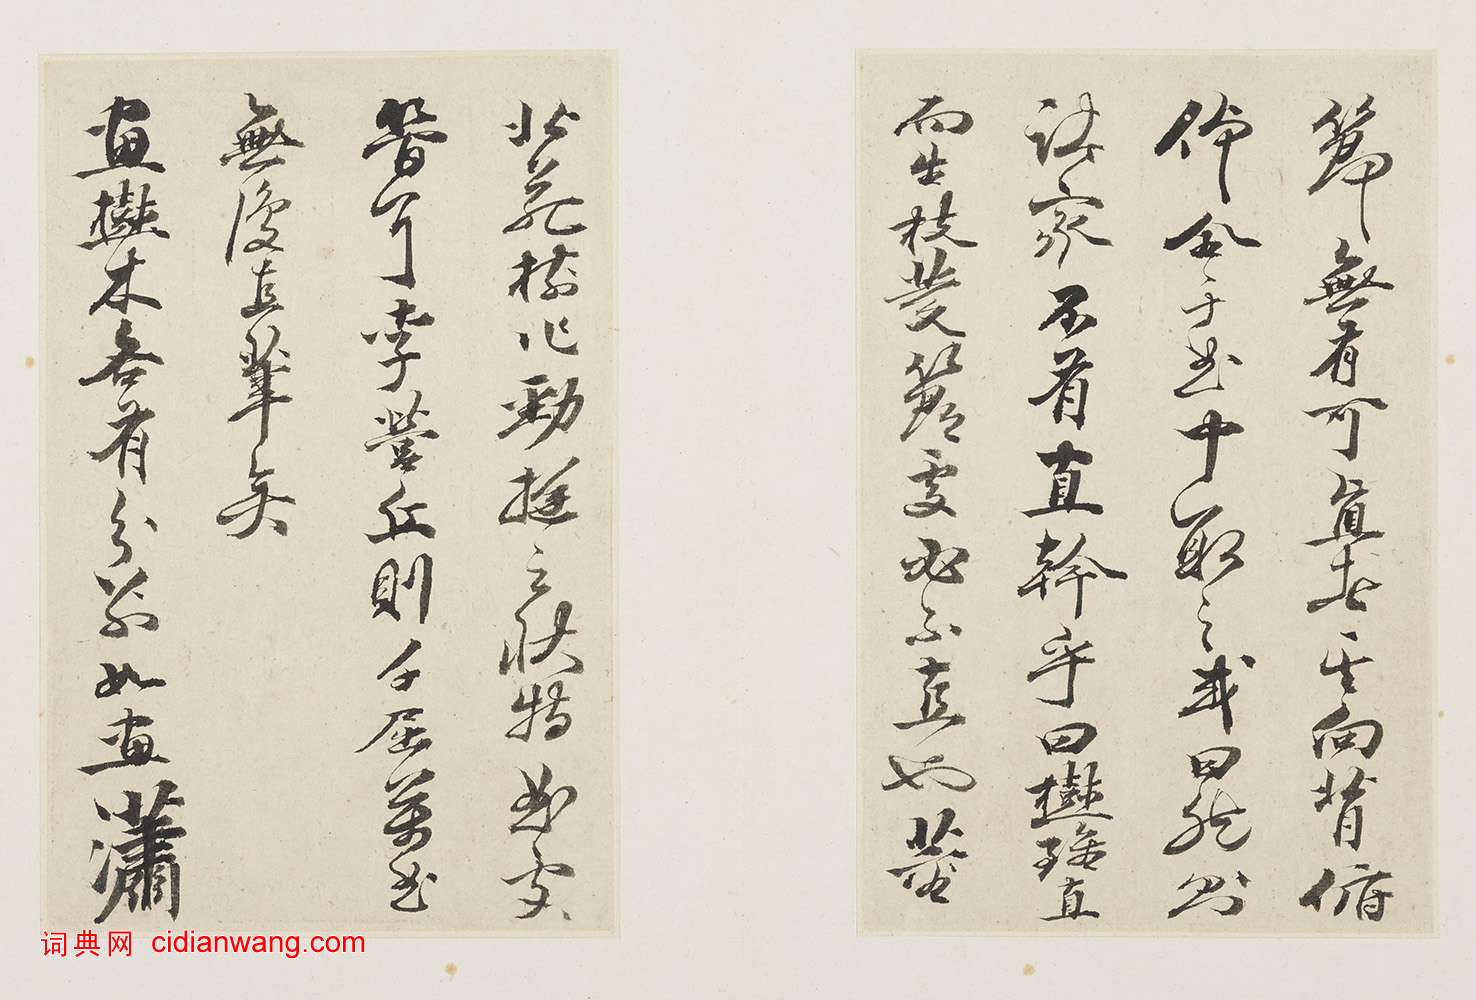 節無有可直者其向背俯
仰全于曲中取之或曰然則
諸家不有直幹乎曰樹雖直
而生枝發節處必不直也董
北苑樹作勁挺之狀特曲處
簡耳李營丘則千屈萬曲
無復直筆矣
畫樹木各有分別如畫瀟
词典网 cidianwang.com